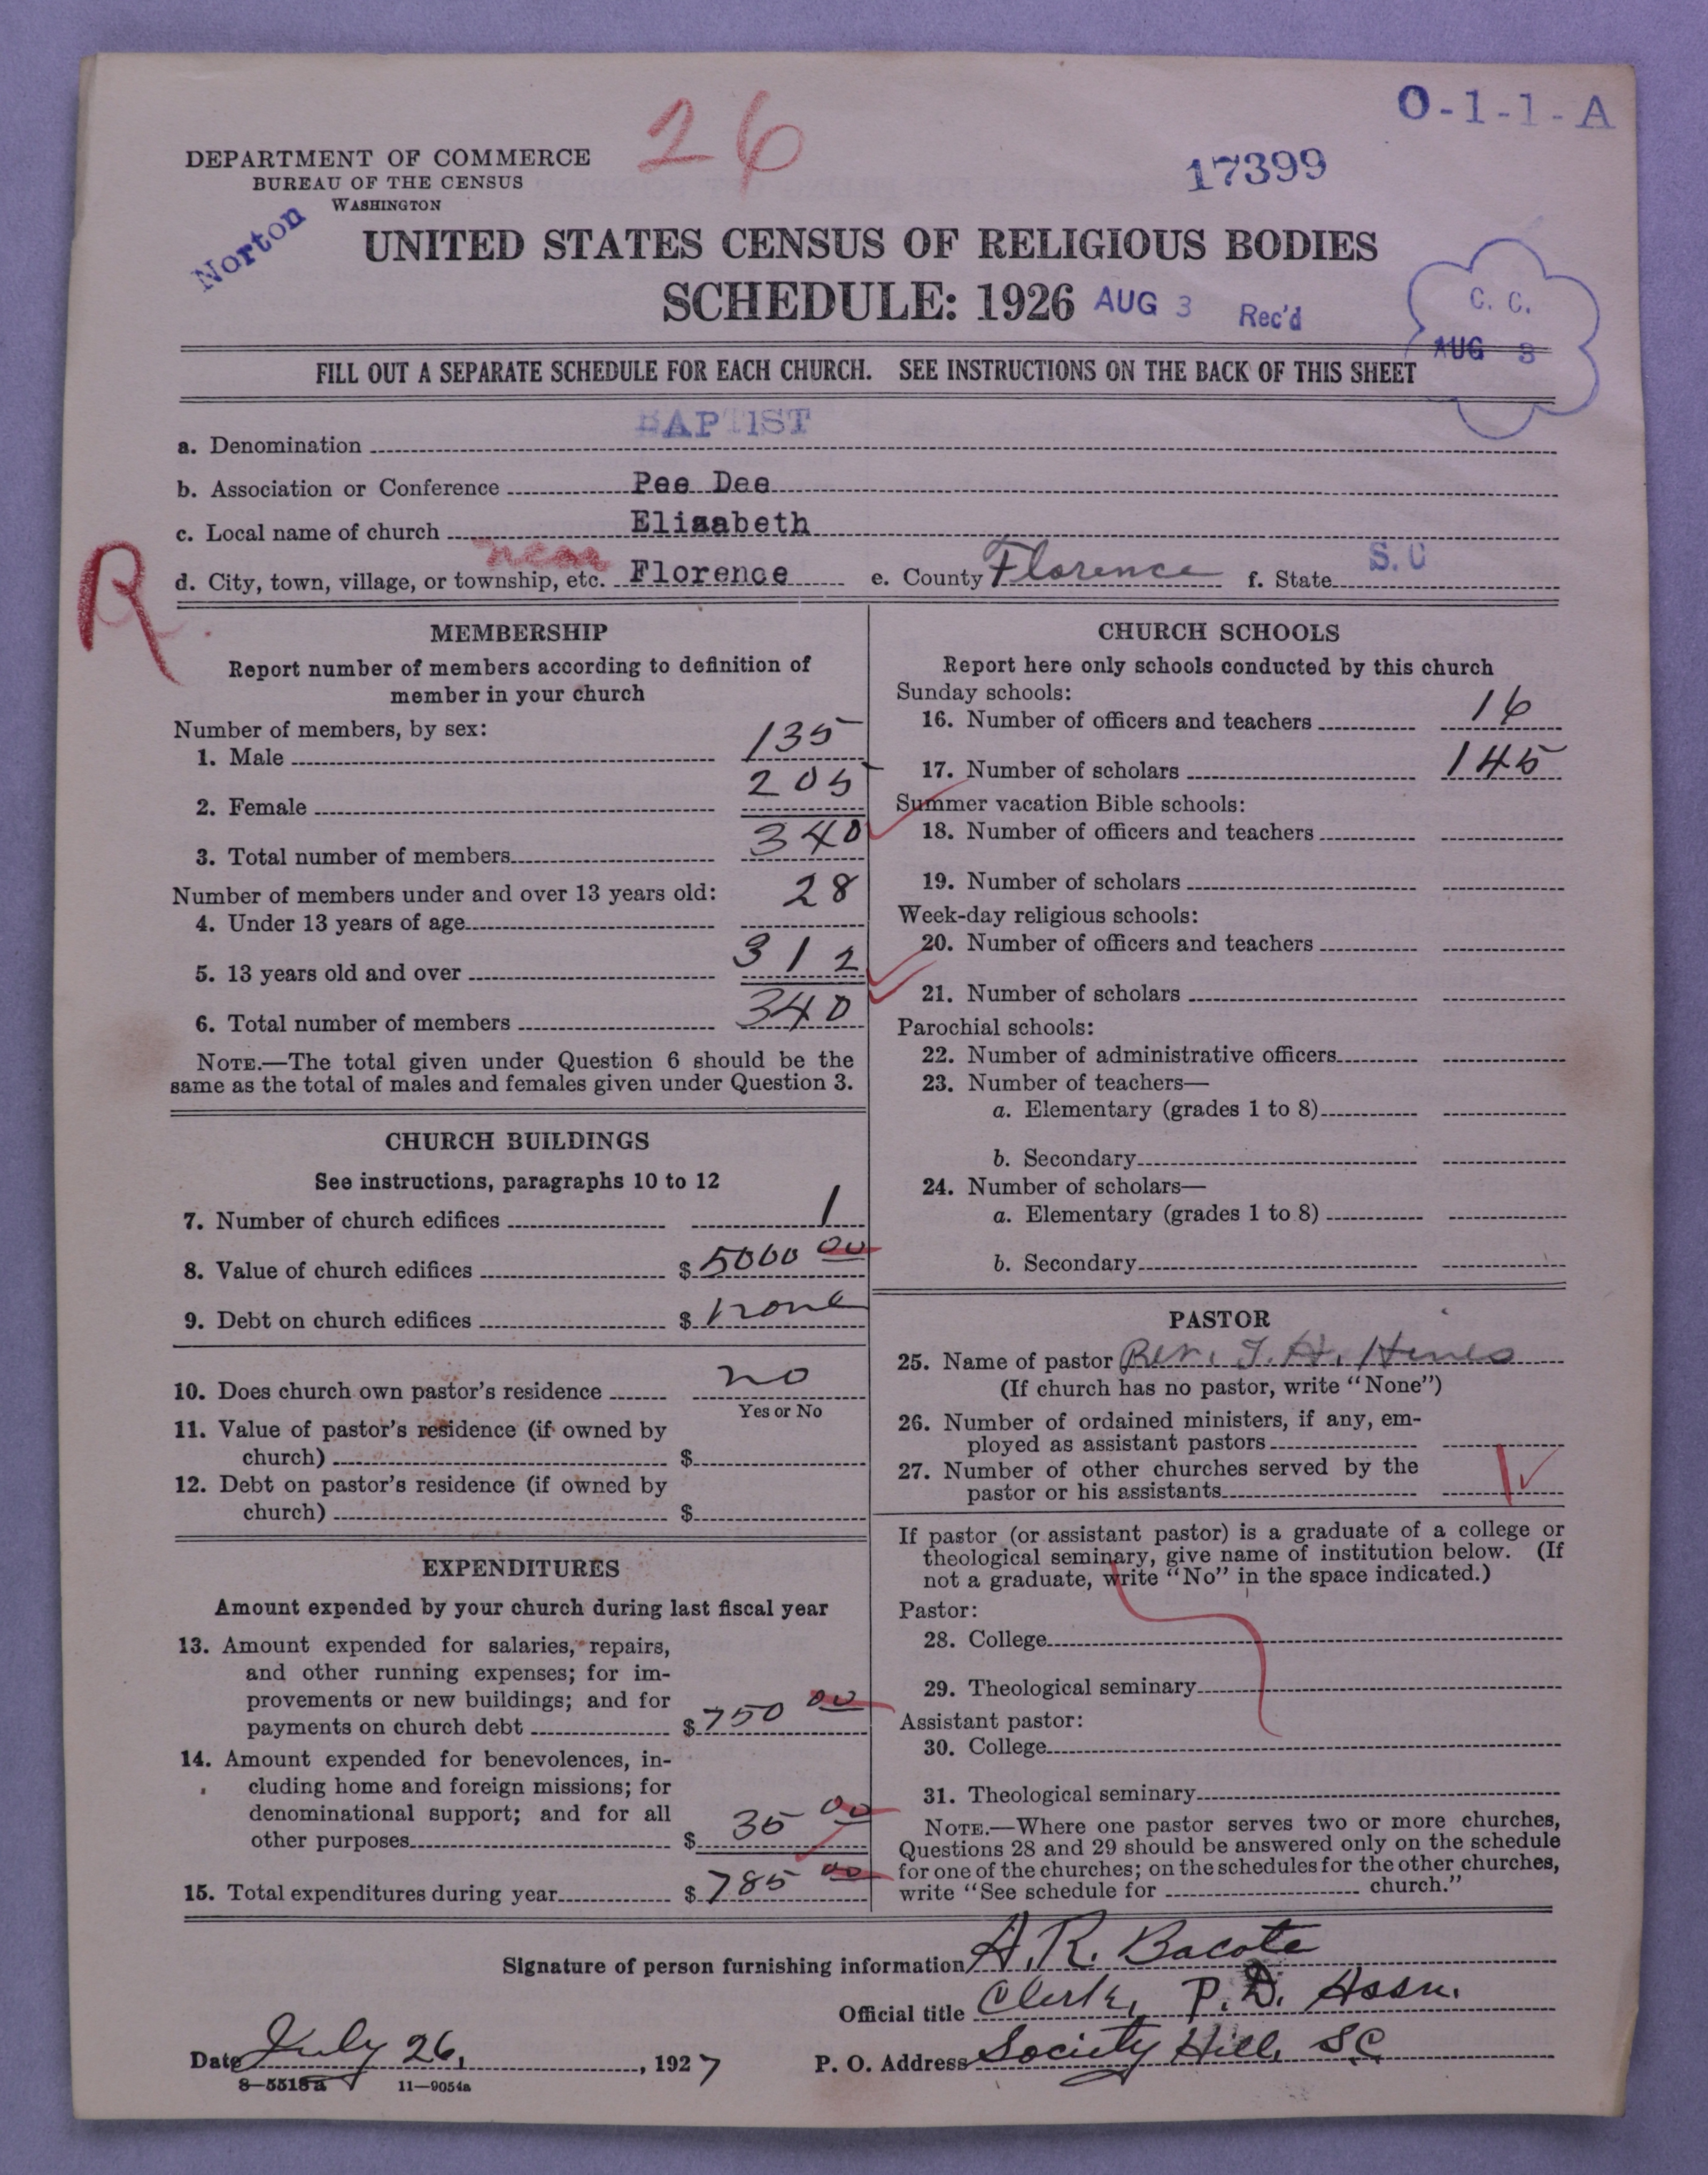 O-1-1-A
26
17399
DEPARTMENT OF COMMERCE
BUREAU OF THE CENSUS
WASHINGTON
Norton
UNITED STATES CENSUS OF RELIGIOUS BODIES
SCHEDULE: 1926 AUG 3 Rec'd
C. C.
AUG 3
FILL OUT A SEPARATE SCHEDULE FOR EACH CHURCH. SEE INSTRUCTIONS ON THE BACK OF THIS SHEET
a. Denomination BAPTIST
b. Association or Conference Pee Dee
c. Local name of church Elizabeth
near
d. City, town, village, or township, etc. Florence e. County Florence f. State S.C
R
MEMBERSHIP
Report number of members according to definition of
member in your church
Number of members, by sex:
1. Male 135
2. Female 205
3. Total number of members 340
Number of members under and over 13 years old:
4. Under 13 years of age 28
5. 13 years old and over 312
6. Total number of members 340
NOTE.—The total given under Question 6 should be the
same as the total of males and females given under Question 3.
CHURCH BUILDINGS
See instructions, paragraphs 10 to 12
7. Number of church edifices 1
8. Value of church edifices $ 5000 00
9. Debt on church edifices $ none
10. Does church own pastor's residence no
Yes or No
11. Value of pastor's residence (if owned by
church) $
12. Debt on pastor's residence (if owned by
church) $
EXPENDITURES
Amount expended by your church during last fiscal year
13. Amount expended for salaries, repairs,
and other running expenses; for im-
provements or new buildings; and for
payments on church debt $ 750 00
14. Amount expended for benevolences, in-
cluding home and foreign missions; for
denominational support; and for all
other purposes $ 35 00
15. Total expenditures during year $ 785 00
CHURCH SCHOOLS
Report here only schools conducted by this church
Sunday schools:
16. Number of officers and teachers 16
17. Number of scholars 145
Summer vacation Bible schools:
18. Number of officers and teachers
19. Number of scholars
Week-day religious schools:
20. Number of officers and teachers
21. Number of scholars
Parochial schools:
22. Number of administrative officers
23. Number of teachers—
a. Elementary (grades 1 to 8)
b. Secondary
24. Number of scholars—
a. Elementary (grades 1 to 8)
b. Secondary
PASTOR
25. Name of pastor Rev. T. H. Hines
(If church has no pastor, write "None")
26. Number of ordained ministers, if any, em-
ployed as assistant pastors
27. Number of other churches served by the
pastor or his assistants 1
If pastor (or assistant pastor) is a graduate of a college or
theological seminary, give name of institution below. (If
not a graduate, write "No" in the space indicated.)
Pastor:
28. College
29. Theological seminary
Assistant pastor:
30. College
31. Theological seminary
NOTE.—Where one pastor serves two or more churches,
Questions 28 and 29 should be answered only on the schedule
for one of the churches; on the schedules for the other churches,
write "See schedule for church."
Signature of person furnishing information A. R. Bacote
Official title Clerk, P. D. Assn.
Date July 26, 1927 P. O. Address Society Hill, S.C
8—5518a 11—9054a